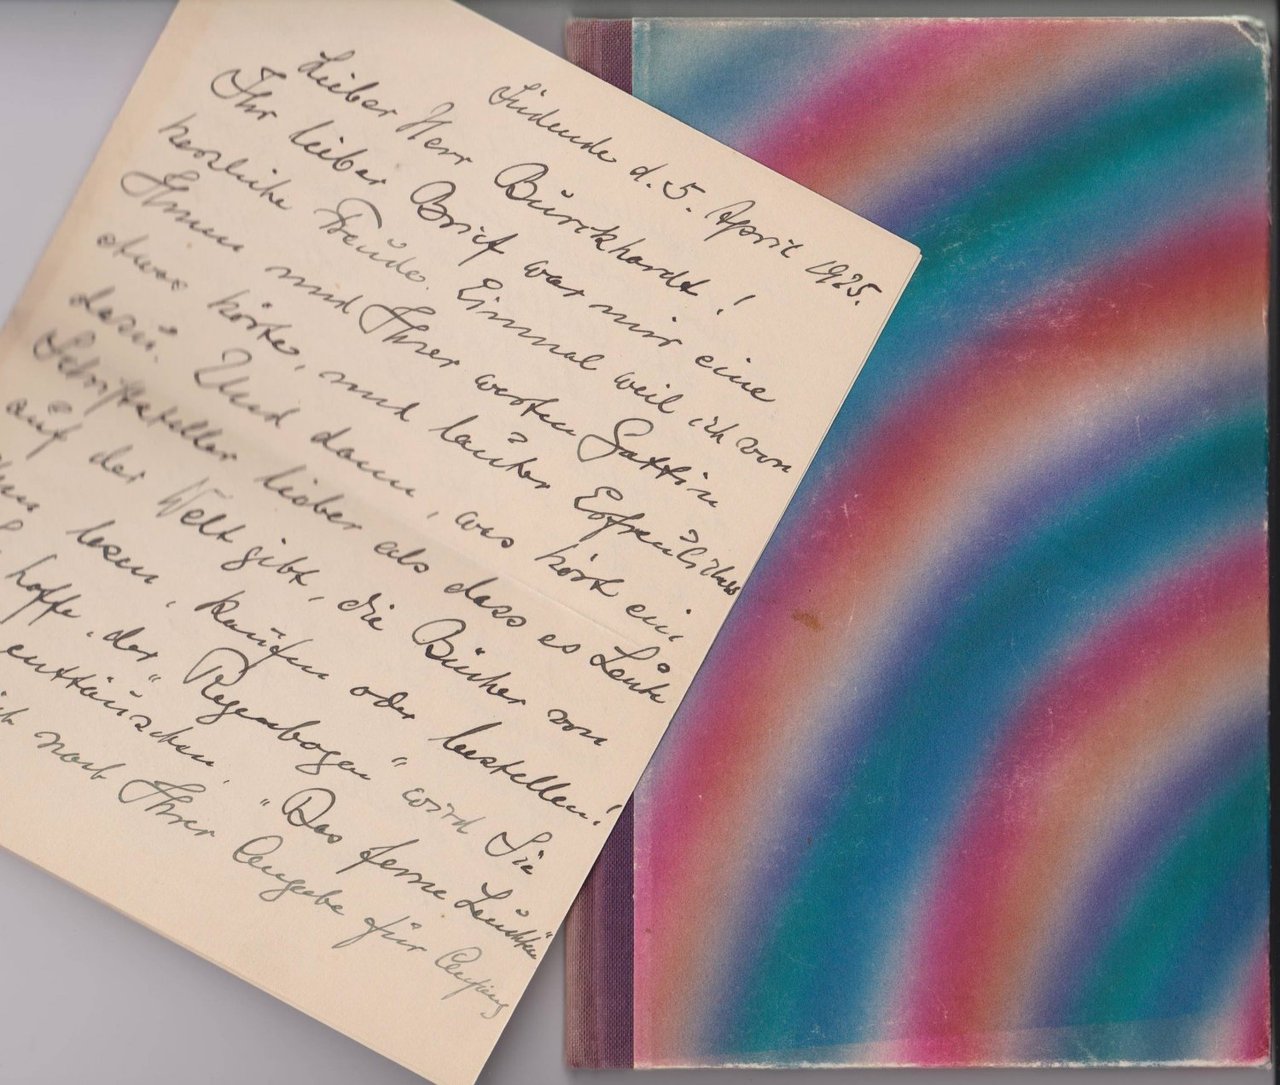 Südende d. 5. April 1925.
Lieber Herr Bürckhardt!
Ihr lieber Brief war mir eine
herzliche Freude. Einmal weil ich von
Ihnen und Ihrer werten Gattin
etwas hörte, und lauter Erfreuliches
dazu. Und dann, was hört ein
Schriftsteller lieber als dass es Leute
auf der Welt gibt, die Bücher von
ihm lesen, kaufen oder bestellen!
hoffe, der "Regenbogen" wird Sie
enttäuschen. "Das ferne Leuchten"
nach Ihrer Angabe für Anfang